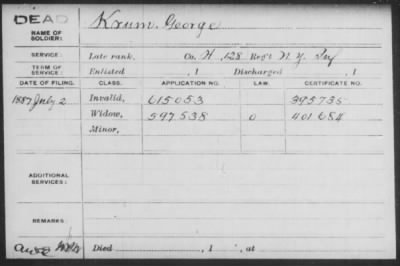 DEAD
Krum, George
NAME OF SOLDIER:
SERVICE: Late rank, Co. H, 128 Reg't N. Y. Inf
TERM OF SERVICE: Enlisted , 1 Discharged , 1
DATE OF FILING. CLASS. APPLICATION NO. LAW. CERTIFICATE NO.
1887 July 2 Invalid, 615053 395735
Widow, 597538 0 401684
Minor,
ADDITIONAL SERVICES:
REMARKS:
Died , 1 , at